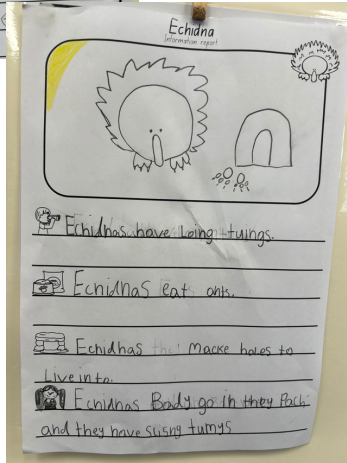 Echidna
Information report
Echidnas have loing tuings.
Echidnas eat ants.
Echidnas that Macke holes to
Live in to.
Echidnas Bady go in they Pach
and they have slisny tumys